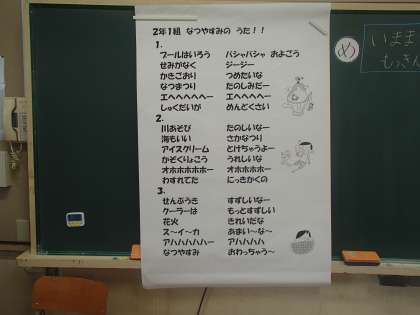 2年1組 なつやすみの うた！！
1.
プールはいろう バシャバシャ およごう
せみがなく ジージー
かきごおり つめたいな
なつまつり たのしみだー
エヘヘヘヘー エヘヘヘヘー
しゅくだいが めんどくさい
2.
川あそび たのしいなー
海もいい さかなつり
アイスクリーム とけちゃうよー
かぞくりょこう うれしいな
オホホホホホー オホホホホホー
わすれてた にっきかくの
3.
せんぷうき すずしいなー
クーラーは もっとすずしい
花火 きれいだな
ス～イ～カ あまい～な～
アハハハハハー アハハハハ
なつやすみ おわっちゃう～
め
いまま